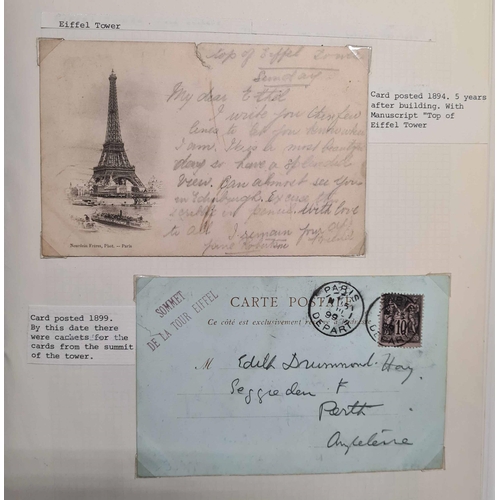 Eiffel Tower
top of Eiffel Tower
Sunday
My dear
I write you
lines to let you know where
I am. This is a most beautiful
day so have a splendid
view. Can almost see you
in Edinburgh. Excuse
in pencil. With love
to all I remain your
Neurdein Frères, Phot. — Paris
Card posted 1894. 5 years
after building. With
Manuscript "Top of
Eiffel Tower
Card posted 1899.
By this date there
were cachets for the
cards from the summit
of the tower.
SOMMET
DE LA TOUR EIFFEL
CARTE POSTALE
Ce côté est exclusivement
PARIS
99
DEPART
10
DEPART
M Edith Drummond Hay
Seggieden
Perth
Angleterre